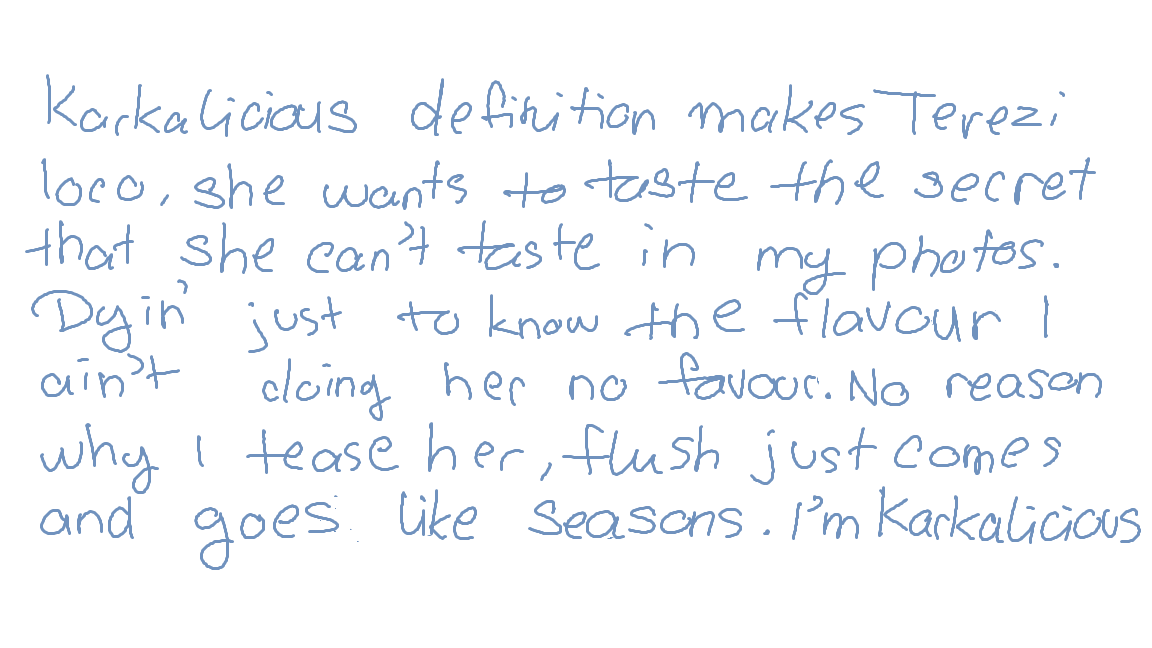 Karkalicious definition makes Terezi
loco, she wants to taste the secret
that she can't taste in my photos.
Dyin' just to know the flavour I
ain't doing her no favour. No reason
why I tease her, flush just comes
and goes like seasons. I'm Karkalicious